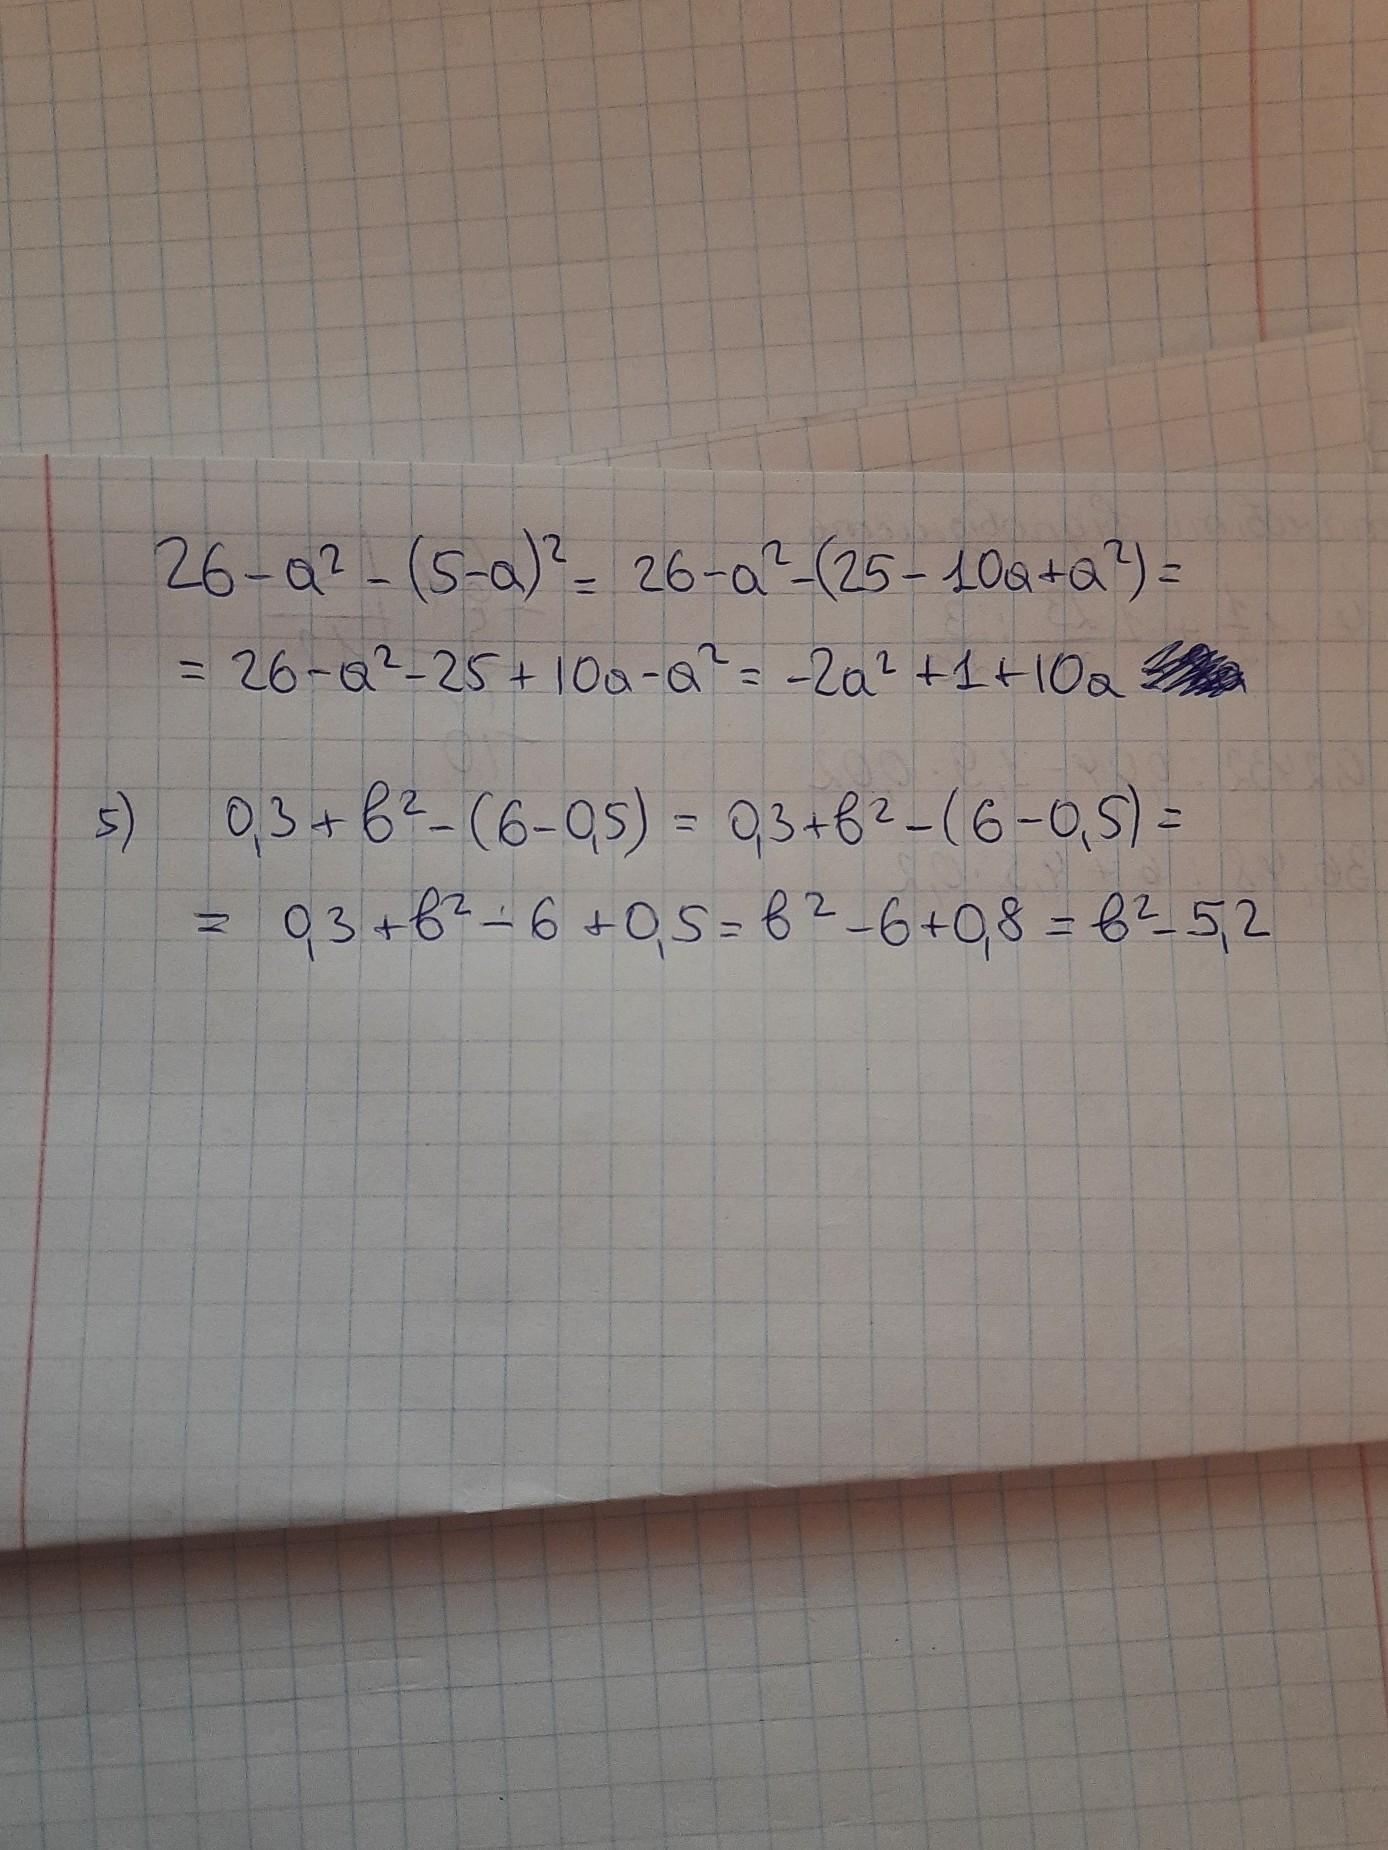 26-a²-(5-a)²= 26-a²-(25-10a+a²)=
= 26-a²-25+10a-a²= -2a²+1+10a
5) 0,3+b²-(6-0,5) = 0,3+b²-(6-0,5)=
= 0,3+b²-6+0,5= b²-6+0,8 = b²-5,2